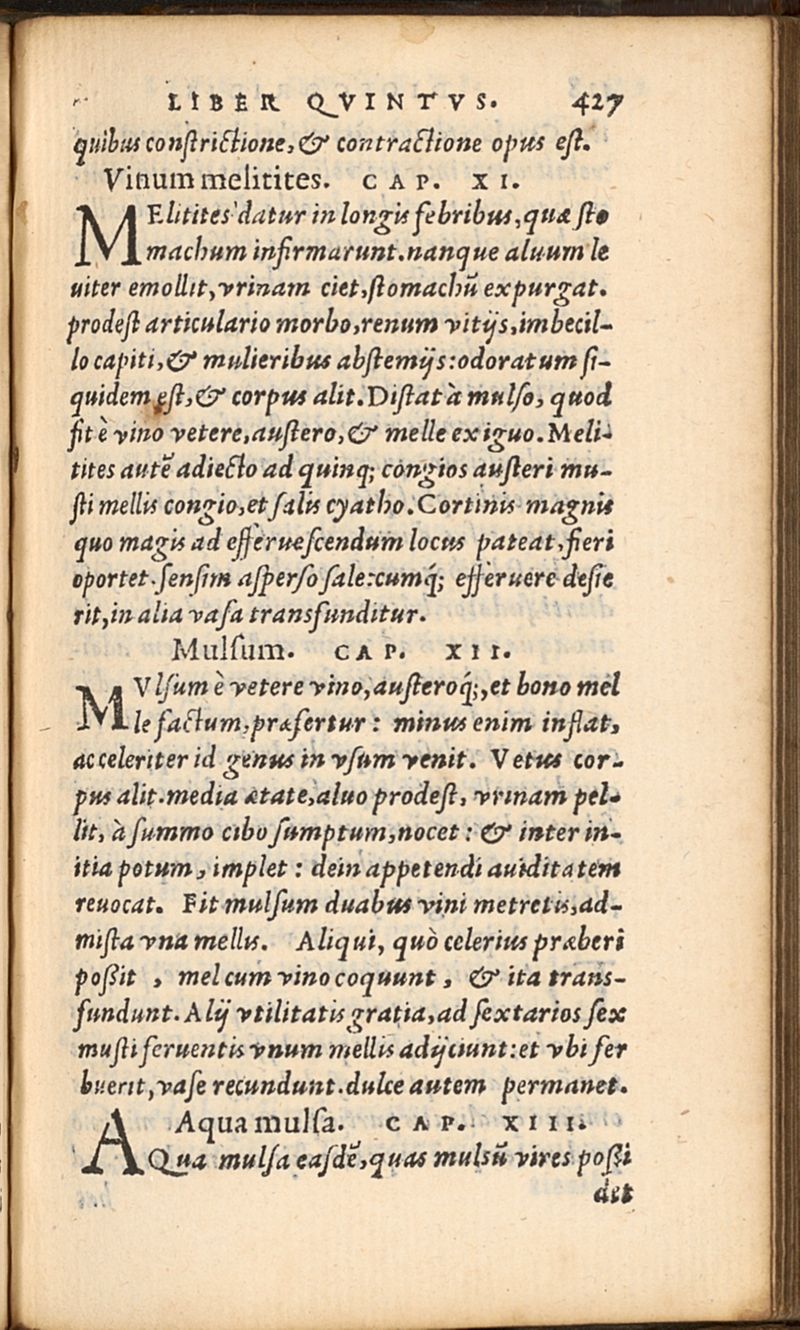 LIBER QVINTVS. 427
quibus constrictione, & contractione opus est.
Vinum melitites. CAP. XI.
MElitites datur in longis febribus, quæ sto
machum infirmarunt. nanque aluum le
uiter emollit, vrinam ciet, stomachũ expurgat.
prodest articulario morbo, renum vitijs, imbecil-
lo capiti, & mulieribus abstemijs: odoratum si-
quidem est, & corpus alit. Distat à mulso, quod
fit è vino vetere, austero, & melle exiguo. Meli-
tites autẽ adiecto ad quinq; congios austeri mu-
sti mellis congio, et salis cyatho. Cortinis magnis
quo magis ad efferuescendum locus pateat, fieri
oportet. sensim asperso sale: cumq́; efferuere desie
rit, in alia vasa transfunditur.
Mulsum. CAP. XII.
MVlsum è vetere vino, austeroq́;, et bono mel
le factum, præfertur: minus enim inflat,
ac celeriter id genus in vsum venit. Vetus cor-
pus alit. media ætate, aluo prodest, vrinam pel-
lit, à summo cibo sumptum, nocet: & inter in-
itia potum, implet: dein appetendi auiditatem
reuocat. Fit mulsum duabus vini metretis, ad-
mista vna mellis. Aliqui, quò celerius præberi
possit, mel cum vino coquunt, & ita trans-
fundunt. Alij vtilitatis gratia, ad sextarios sex
musti feruentis vnum mellis adijciunt: et vbi fer
buerit, vase recundunt. dulce autem permanet.
Aqua mulsa. CAP. XIII.
AQua mulsa easdẽ, quas mulsũ vires possi
det